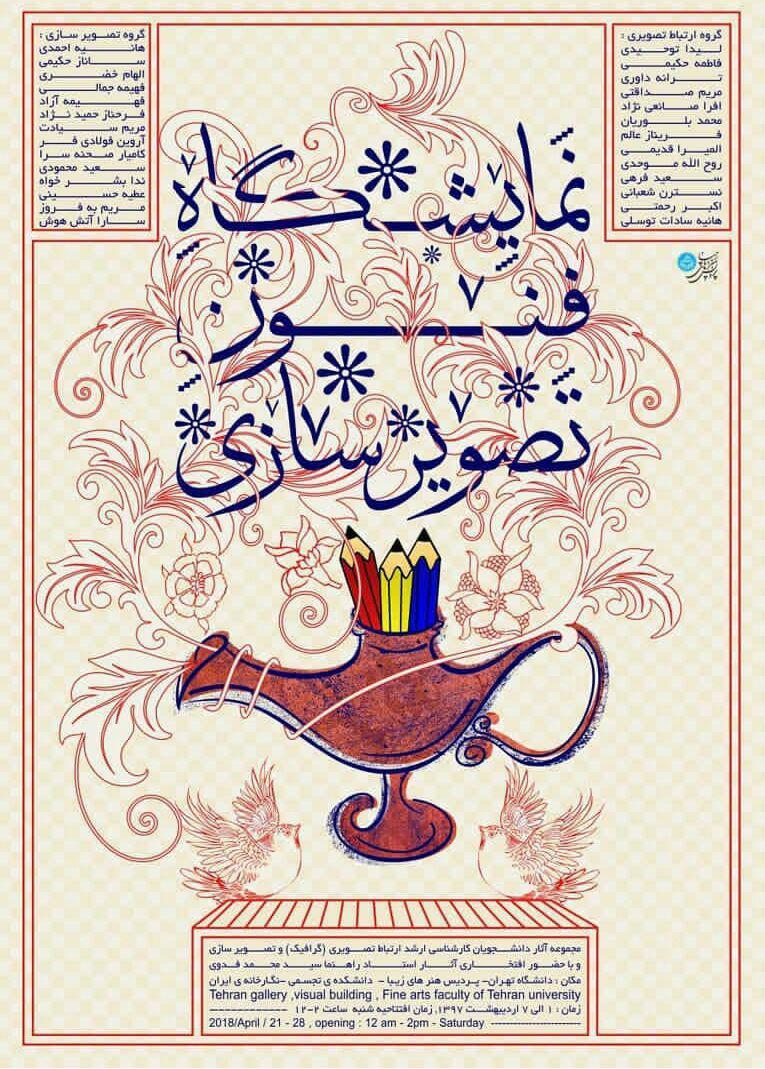 گروه ارتباط تصویری :
لیدا توحیدی
فاطمه حکیمی
ترانه داوری
مریم صداقتی
افرا صانعی نژاد
محمد بلوریان
فریناز عالم
المیرا قدیمی
روح الله موحدی
سعید فرهی
نسترن شعبانی
اکبر رحمتی
هانیه سادات توسلی
گروه تصویر سازی :
هانیه احمدی
ساناز حکیمی
الهام خضری
فهیمه جمالی
فهیمه آزاد
فرحناز حمید نژاد
مریم سیادت
آروین فولادی فر
کامیار صحنه سرا
سعید محمودی
ندا بشر خواه
عطیه حسینی
مریم به فروز
سارا آتش هوش
نمایشگاه
فنون
تصویرسازی
مجموعه آثار دانشجویان کارشناسی ارشد ارتباط تصویری (گرافیک) و تصویر سازی
و با حضور افتخاری آثار استاد راهنما سید محمد فدوی
مکان : دانشگاه تهران- پردیس هنر های زیبا - دانشکده ی تجسمی -نگارخانه ی ایران
Tehran gallery ,visual building , Fine arts faculty of Tehran university
زمان : ۱ الی ۷ اردیبهشت ۱۳۹۷, زمان افتتاحیه شنبه ساعت ۲-۱۲ ------------
2018/April / 21 - 28 , opening : 12 am - 2pm - Saturday ----------------------